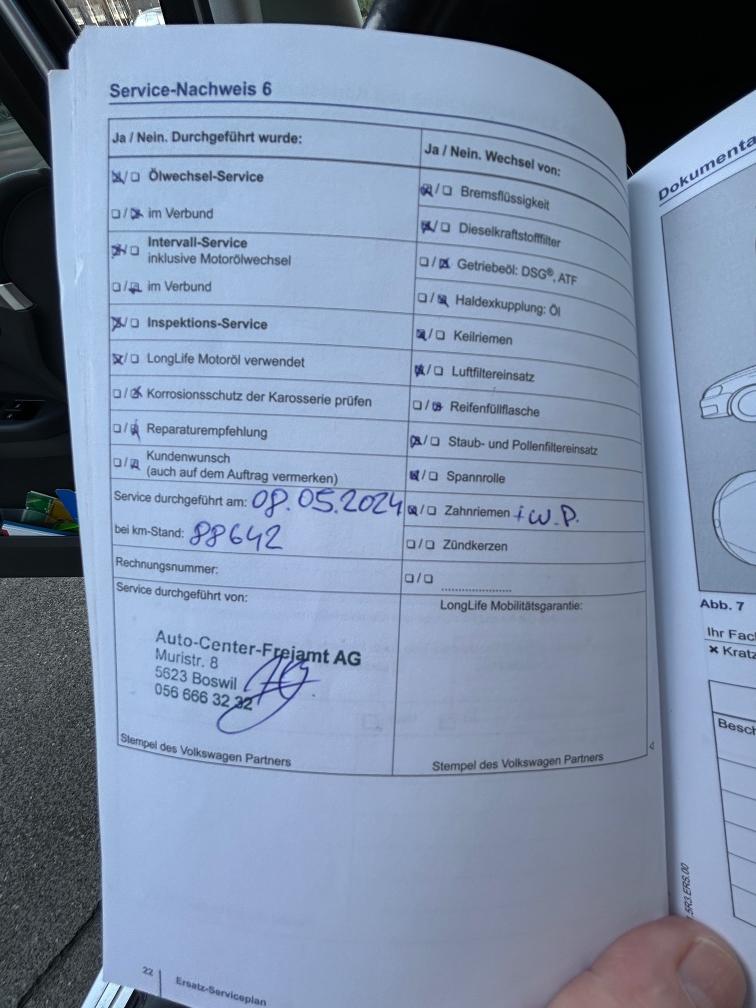 Service-Nachweis 6
Ja / Nein. Durchgeführt wurde:
☒/☐ Ölwechsel-Service
☐/☒ im Verbund
☒/☐ Intervall-Service
inklusive Motorölwechsel
☐/☒ im Verbund
☒/☐ Inspektions-Service
☒/☐ LongLife Motoröl verwendet
☐/☒ Korrosionsschutz der Karosserie prüfen
☐/☒ Reparaturempfehlung
☐/☒ Kundenwunsch
(auch auf dem Auftrag vermerken)
Service durchgeführt am: 08.05.2024
bei km-Stand: 88642
Rechnungsnummer:
Service durchgeführt von:
Auto-Center-Freiamt AG
Muristr. 8
5623 Boswil
056 666 32 32
Stempel des Volkswagen Partners
Ja / Nein. Wechsel von:
☒/☐ Bremsflüssigkeit
☒/☐ Dieselkraftstofffilter
☐/☒ Getriebeöl: DSG®, ATF
☐/☒ Haldexkupplung: Öl
☒/☐ Keilriemen
☒/☐ Luftfiltereinsatz
☐/☒ Reifenfüllflasche
☒/☐ Staub- und Pollenfiltereinsatz
☒/☐ Spannrolle
☒/☐ Zahnriemen + W.P.
☐/☐ Zündkerzen
☐/☐ ....................
LongLife Mobilitätsgarantie:
Stempel des Volkswagen Partners
22 Ersatz-Serviceplan
Dokumenta
Abb. 7
Ihr Fac
× Kratz
Besch
5R3.ERS.00